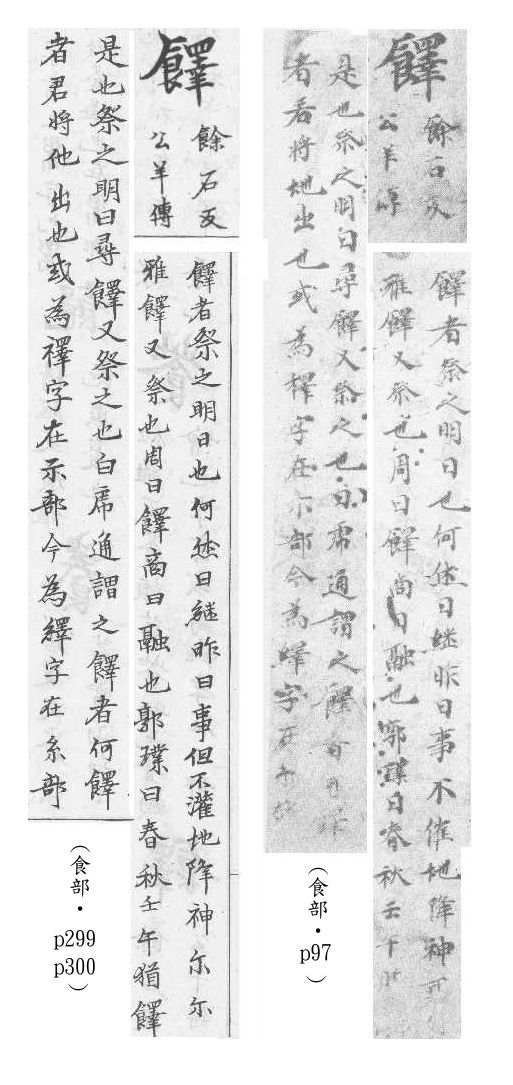 䭞
餘石反
公羊傳
䭞者祭之明日也何然曰継昨日事不催地降神
雅䭞又祭也周曰䭞商曰融也郭璞曰春秋云
是也祭之明白尋䭞又祭之也白虎通謂之䭞
者若将地出也或為襗字在示部今為繹字
(食部・p97)
䭞
餘石反
公羊傳
䭞者祭之明日也何然曰継昨日事但不灌地降神尓尓
雅䭞又祭也周曰䭞商曰融也郭璞曰春秋壬午猶䭞
是也祭之明曰尋䭞又祭之也白虎通謂之䭞者何䭞
者君将他出也或為襗字在示部今為繹字在糸部
(食部・
p299
p300)